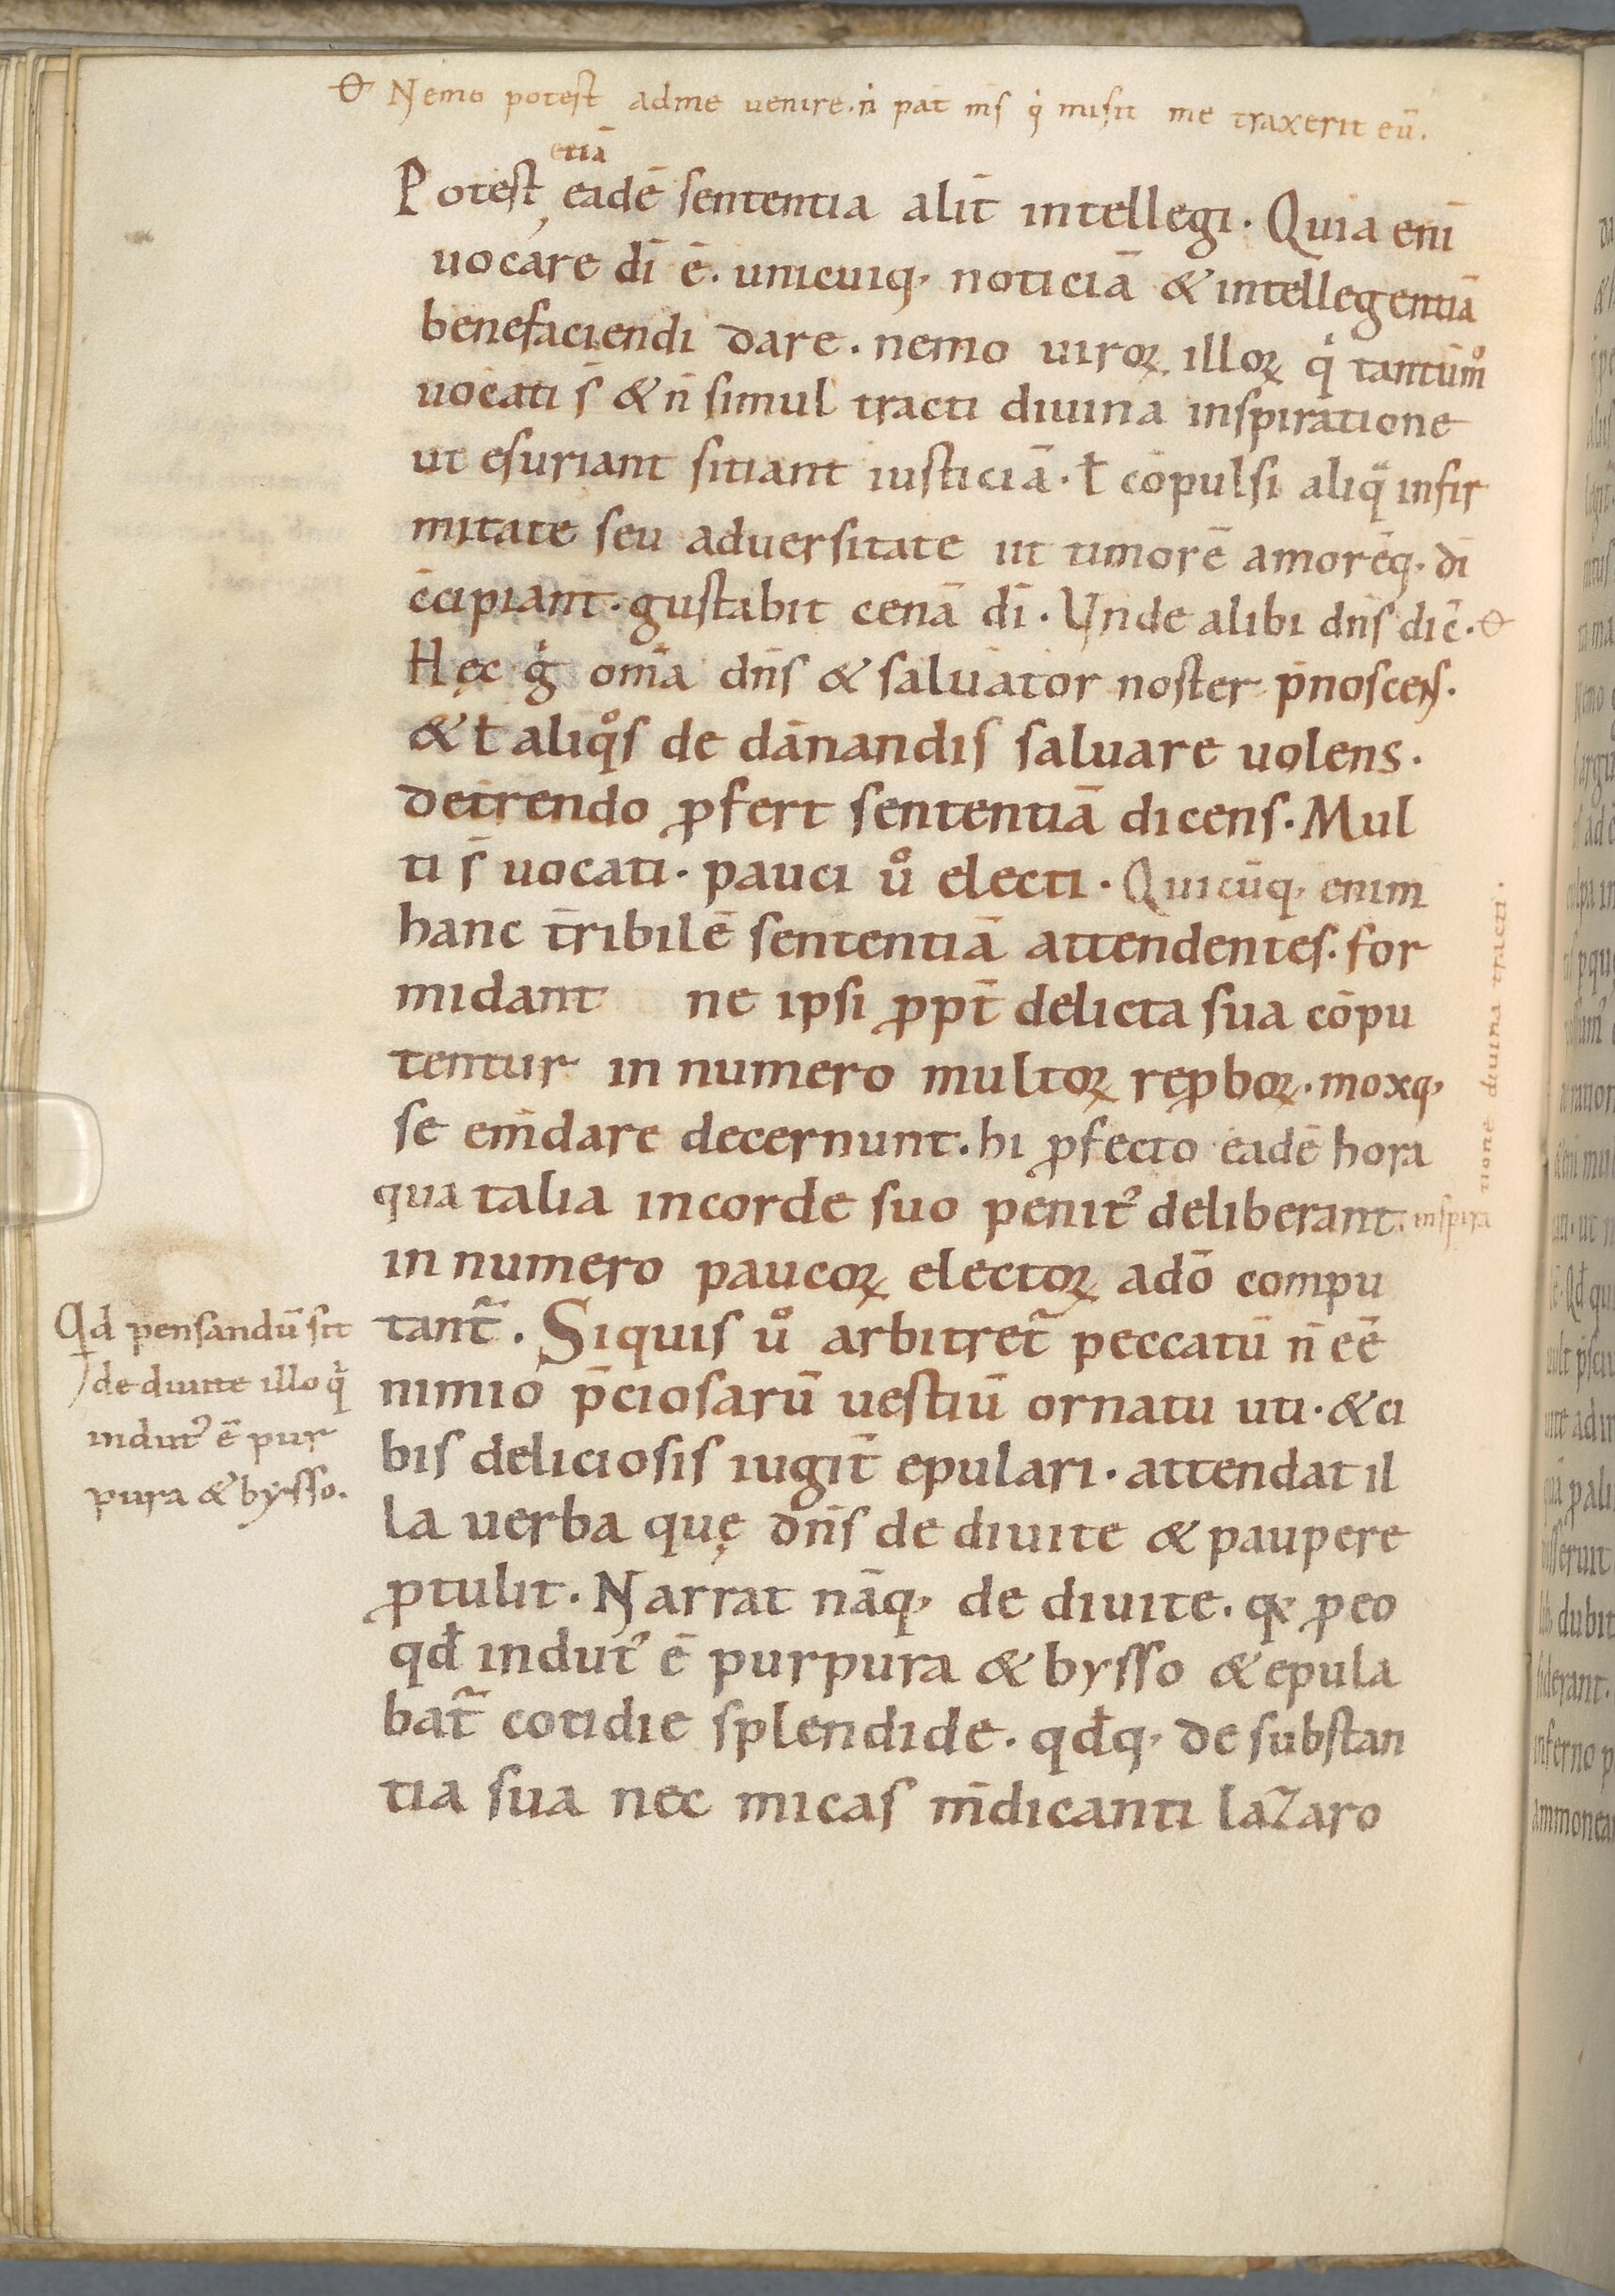 Nemo potest adme uenire. n̄ pat̄ m̄s q̇ misit me traxerit eū.
etiā
Potest, eadē sententia alit̄ intellegi. Quia eni
uocare dī ē. unicuiq; noticiā & intellegentiā
benefaciendi dare. nemo uiroꝝ illoꝝ q̇ tantūmͦ
uocati s̄ & n̄ simul tracti diuina inspiratione
ut esuriant sitiant iusticiā. ł cōpulsi aliqᷓ infir
mitate seu aduersitate ut timorē amorēq; dī
c̄cipiant. gustabit cenā dī. Unde alibi dn̄s dic̄.
Hęc g̊ om̄a dn̄s & saluator noster p̄noscens.
& ł aliqͦs de dānandis saluare uolens.
det̄rendo ꝓfert sententiā dicens. Mul
ti s̄ uocati. pauci uͦ electi. Quicūq; enim
hanc t̄ribilē sententiā attendentes. for
midant ne ipsi ꝓpt̄ delicta sua cōpu
tentur in numero multoꝝ reꝓboꝝ. moxq;
se em̄dare decernunt. hi ꝓfecto eadē hora
qua talia incorde suo penit᾽ deliberant
inspira
tione diuina tracti.
in numero paucoꝝ electoꝝ adō compu
tant᷑. Siquis uͦ arbitret᷑ peccatū n̄ eē
nimio p̄ciosarū uestiū ornatu uti. & ci
bis deliciosis iugit̄ epulari. attendat il
la uerba quę dn̄s de diuite & paupere
ꝓtulit. Narrat nāq; de diuite. qꝫ ꝓ eo
qđ indut᾽ ē purpura & bysso & epula
bat᷑ cotidie splendide. qđq; de substan
tia sua nec micas m̄dicanti lazaro
Qd pensandū sit
de diuite illo q̇
indut᾽ ē pur
pura & bysso.